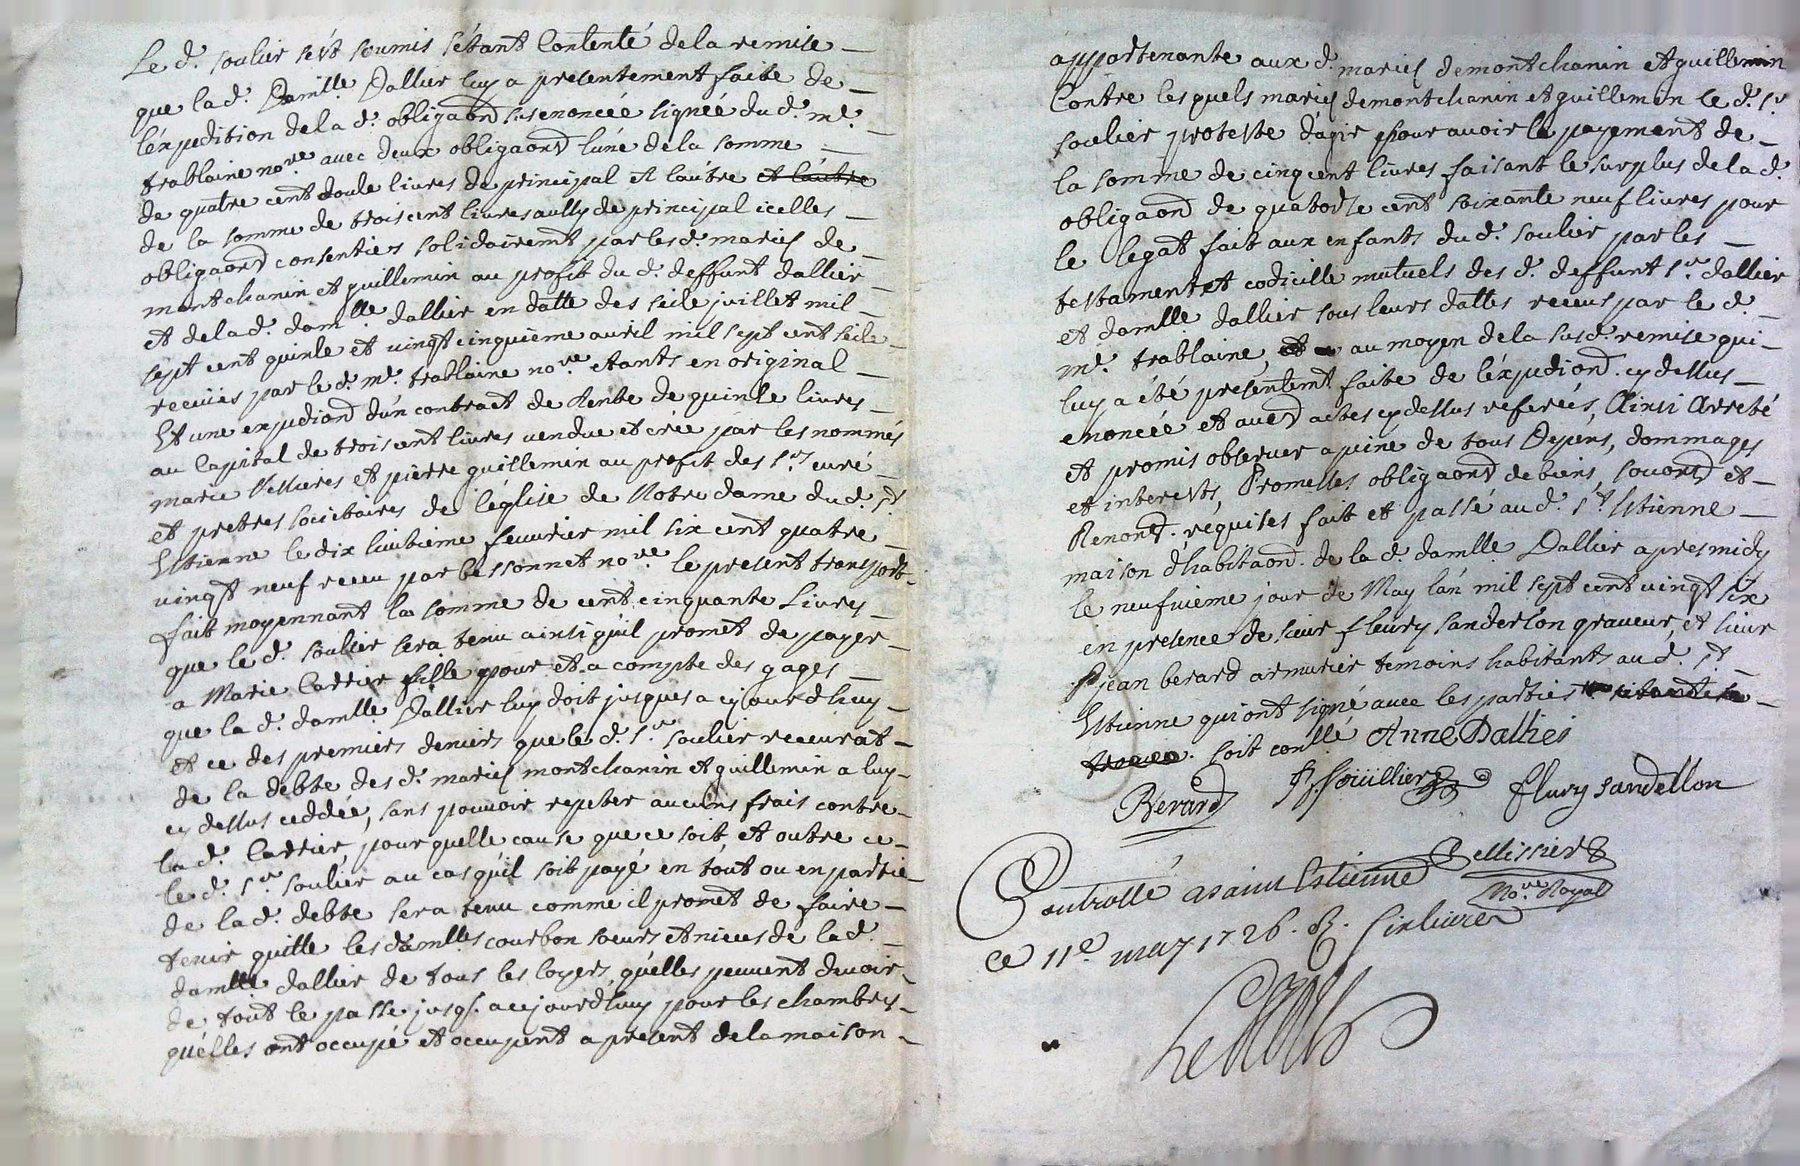 Le d. soulier s'est soumis s'étant Contenté de la remise
que la d. Damlle Dallier luy a presentement faite de
l'expedition de la d. obligaond susenoncée signée du d. me.
trablaine nore. avec deux obligaond l'une de la somme
de quatre cent douze livres de principal et l'autre et l'autre
de la somme de trois cent livres aussy de principal icelles
obligaond consenties solidairemt par les d. mariés de
montchanin et guillemin au profit du d. deffunt dallier
et de la d. damlle. dallier en datte des seize juillet mil
sept cent quinze et vingt cinquieme avril mil sept cent seize
receües par le d. me. trablaine nore. etants en original
Et une expediond d'un contract de Rente de quinze livres
au Capital de trois cent livres vendue et crée par les nommés
marie Vessieres et pierre guillemin au profit des Srs curé
et prêtres societaires de l'église de Notre dame du d. St
Estienne le dix huitieme fevurier mil six cent quatre
vingt neuf receu par bessonnet nore. le present transport
fait moyennant la somme de cent cinquante Livres
que le d. soulier sera tenu ainsi qu'il promet de payer
a Marie Cartier fille pour et a compte des gages
que la d. damlle Dallier luy doit jusques a cejourd'huy
et ce des premiers deniers que le d. Sr. soulier recevrat
de la debte des d. mariés montchanin et guillemin a luy
cy dessus ceddée, sans pouvoir repeter aucuns frais contre
la d. Cartier pour quelle cause que ce soit, et outre ce
le d. Sr. soulier au cas qu'il soit payé en tout ou en partie
de la d. debte sera tenu comme il promet de faire
tenir quitte les damlles courbon soeurs et nieces de la d.
damlle dallier de tous les loyers qu'elles peuvent devoir
de tout le passé jusqs. a cejourd'huy pour les chambres
qu'elles ont occupé et occupent a present de la maison
appartenante aux d. mariés demontchanin et guillemin
Contre lesquels mariés demontchanin et guillemin le d. Sr
soulier proteste d'agir pour avoir le payement de
la somme de cinq cent livres faisant le surplus de la d.
obligaond de quatorze cent soixante neuf livres pour
le legat fait aux enfants du d. soulier par les
testament et codicille mutuels des d. deffunt Sr. dallier
et damlle dallier sous leurs dattes receus par le d.
me. trablaine, au moyen de la susd. remise qui
luy a été presentemt faite de l'expediond. cy dessus
enoncée et aud actes cy dessus referés, Ainsi Arreté
et promis observer a peine de tous Depens, dommages
et interests, Promesses obligaond de biens, soumd et
Renond. requises fait et passé au d. St Estienne
maison d'habitaond. de la d. damlle Dallier apres midy
le neufuieme jour de May l'an mil sept cent vingt six
en presence de sieur fleury sanderlon graveur, et sieur
jean berard armurier temoins habitants au d. St
Estienne qui ont signé avec les parties
soit conllé Anne Dallies
Bérard JSouillier fleury sandellon
Controllé a saint Estienne Pellissier
ce 11e may 1726. R. six livres Nore. Royal